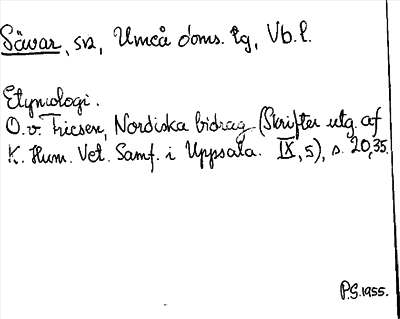 Sävar, sn, Umeå doms. tg, Vb. l.
Etymologi.
O. v. Friesen, Nordiska bidrag (Skrifter utg. af
K. Hum. Vet. Samf. i Uppsala. IX, 5), s. 20, 35.
P.G. 1955.